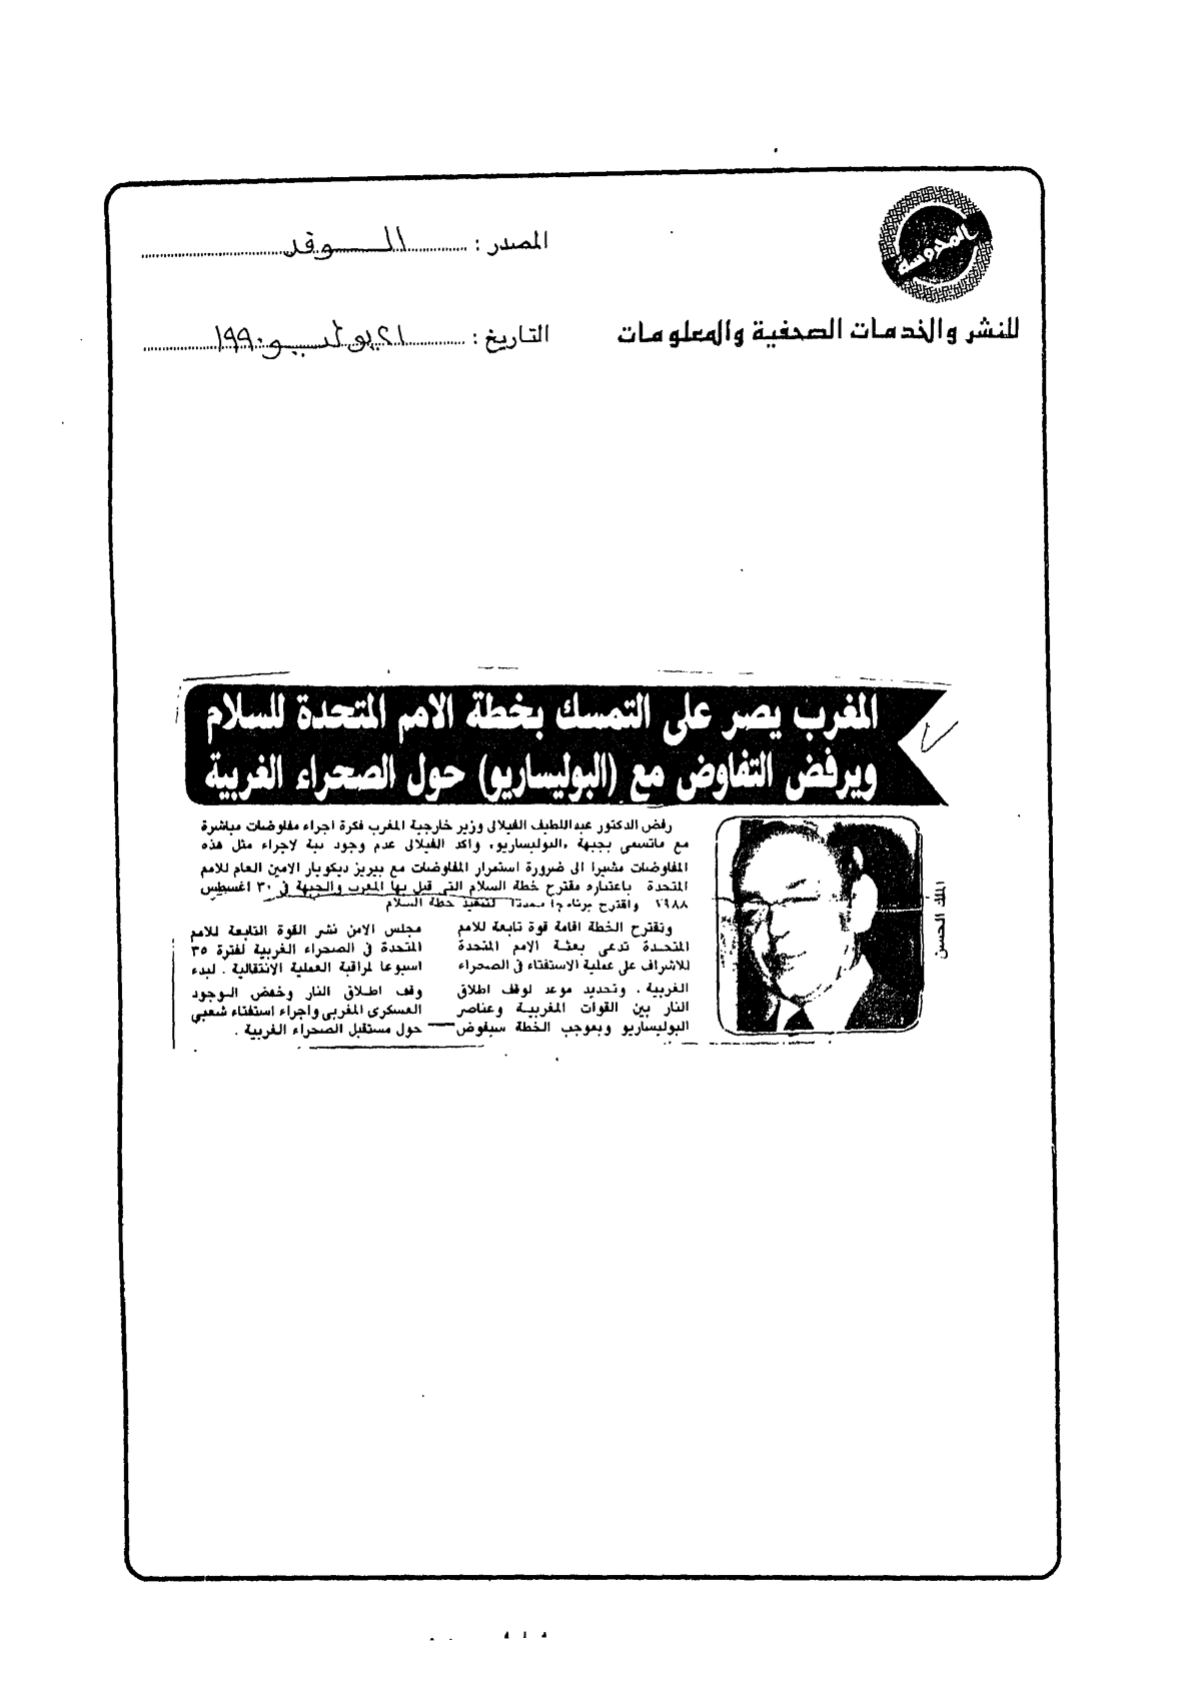 المحروسة
للنشر والخدمات الصحفية والمعلومات
المصدر : الوفد
التاريخ : ٢١ يوليو ١٩٩٠
المغرب يصر على التمسك بخطة الامم المتحدة للسلام
ويرفض التفاوض مع (البوليساريو) حول الصحراء الغربية
رفض الدكتور عبداللطيف الفيلالى وزير خارجية المغرب فكرة اجراء مفاوضات مباشرة
مع ماتسمى بجبهة «البوليساريو» واكد الفيلالى عدم وجود نية لاجراء مثل هذه
المفاوضات مشيرا الى ضرورة استمرار المفاوضات مع بيريز ديكويار الامين العام للامم
المتحدة باعتباره مقترح خطة السلام التى قبل بها المغرب والجبهة فى ٣٠ اغسطس
١٩٨٨ واقترح برنامجا محددا لتنفيذ خطة السلام
وتقترح الخطة اقامة قوة تابعة للامم
المتحدة تدعى بعثة الامم المتحدة
للاشراف على عملية الاستفتاء فى الصحراء
الغربية . وتحديد موعد لوقف اطلاق
النار بين القوات المغربية وعناصر
البوليساريو وبموجب الخطة سيفوض
مجلس الامن نشر القوة التابعة للامم
المتحدة فى الصحراء الغربية لفترة ٣٥
اسبوعا لمراقبة العملية الانتقالية . لبدء
وقف اطلاق النار وخفض الوجود
العسكرى المغربى واجراء استفتاء شعبى
حول مستقبل الصحراء الغربية .
الملك الحسن